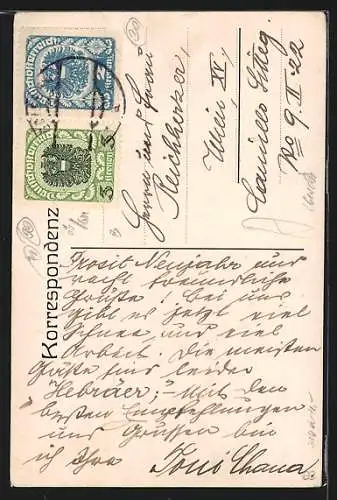 Deutschösterreich
Deutschösterreich
3 Kronen 3
Korrespondenz
Herrn und Frau
Reichherzer,
Wien, XV,
Camillo Sitteg.
No 9. II. 22
Prosit Neujahr und
recht freundliche
Grüße! Bei uns
gibt es jetzt viel
Schnee, und viel
Arbeit. Die meisten
Gäste sind leider
"Hebräer;" – Mit den
besten Empfehlungen
und Grüssen bin
ich Ihre Toni